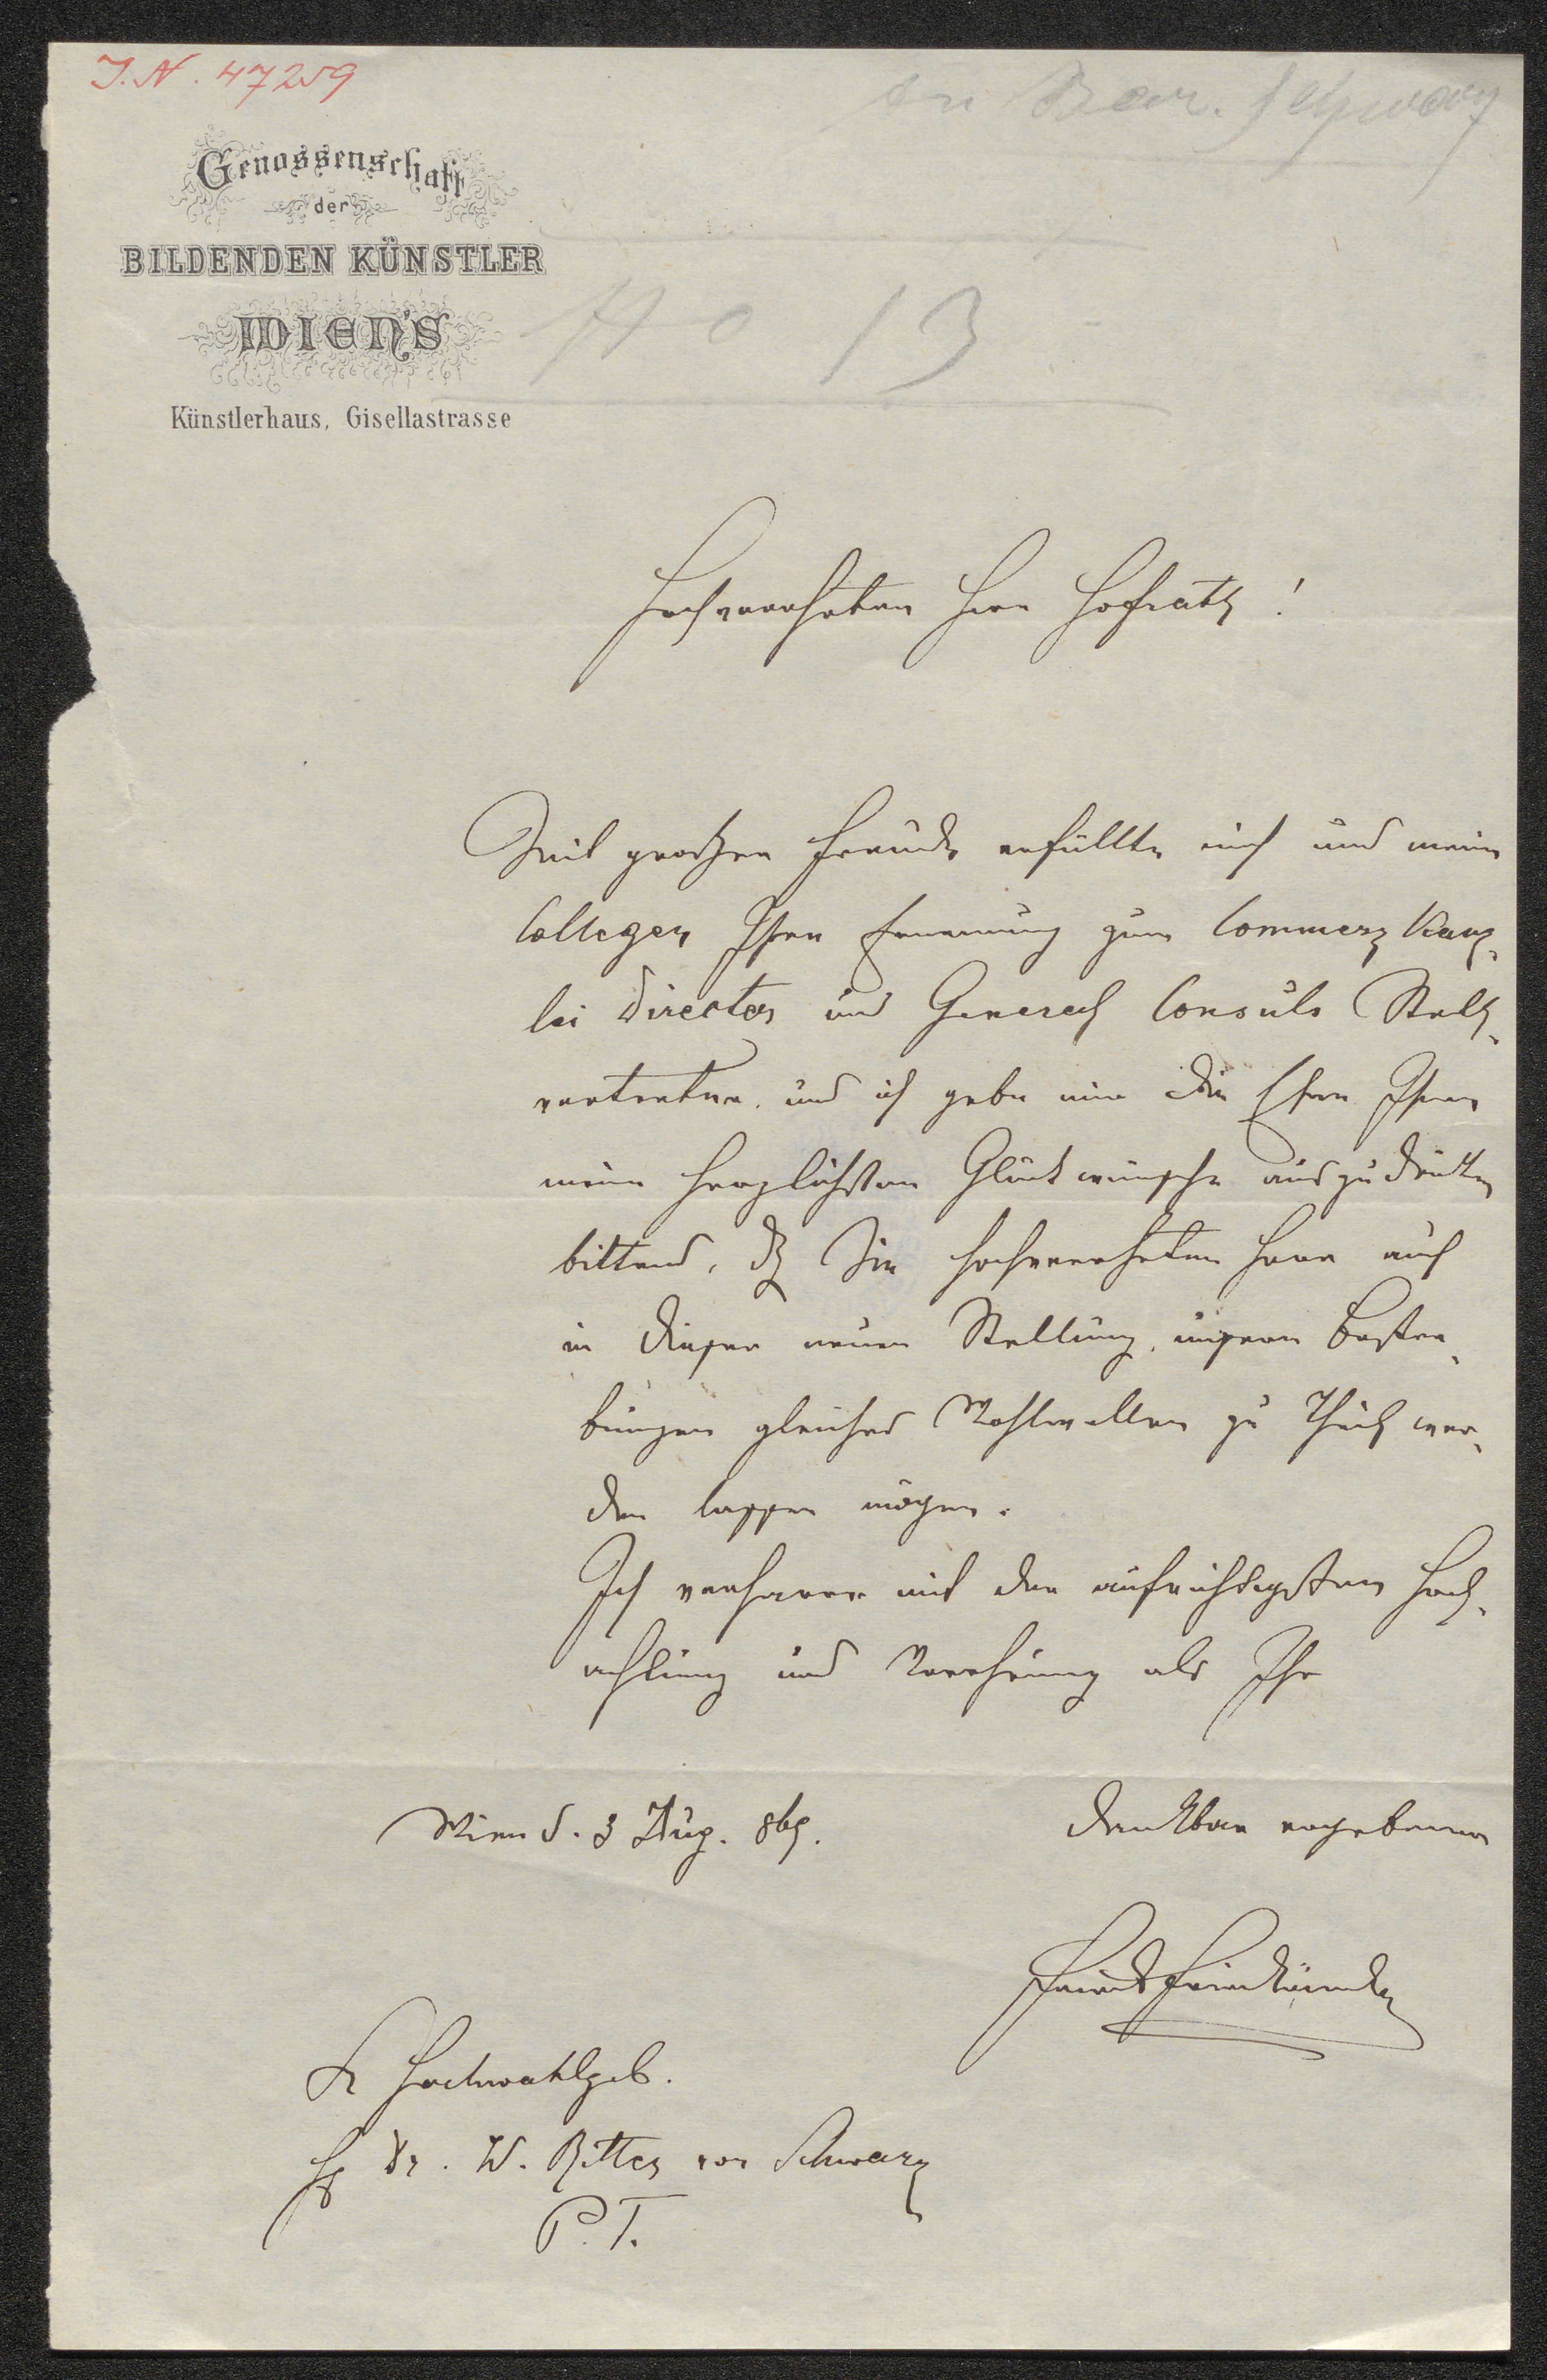 I. N. 47259
an Bar. Schwarz
Genossenschaft
der
BILDENDEN KÜNSTLER
WIEN'S
No 13
Künstlerhaus, Gisellastrasse
Hochverehrter Herr Hofrath!
Mit großer Freude erfüllte mich und meine
Collegen Ihre Ernennung zum Commerz Kanz-
lei Director und General Consuls Stell-
vertreter. und ich gebe mir die Ehre Ihnen
meine herzlichsten Glückwünsche auszudrücken
bittend, dß Sie hochverehrter Herr auch
in dieser neuen Stellung, unsern Bestre-
bungen gleiches Wohlwollen zu Theil wer-
den lassen mögen.
Ich verharre mit der aufrichtigsten Hoch-
achtung und Verehrung als Ihr
Wien d. 3 Aug. 869.
dankbar ergebener
Sr Hochwohlgeb.
H Dr. W. Ritter von Schwarz
P. T.